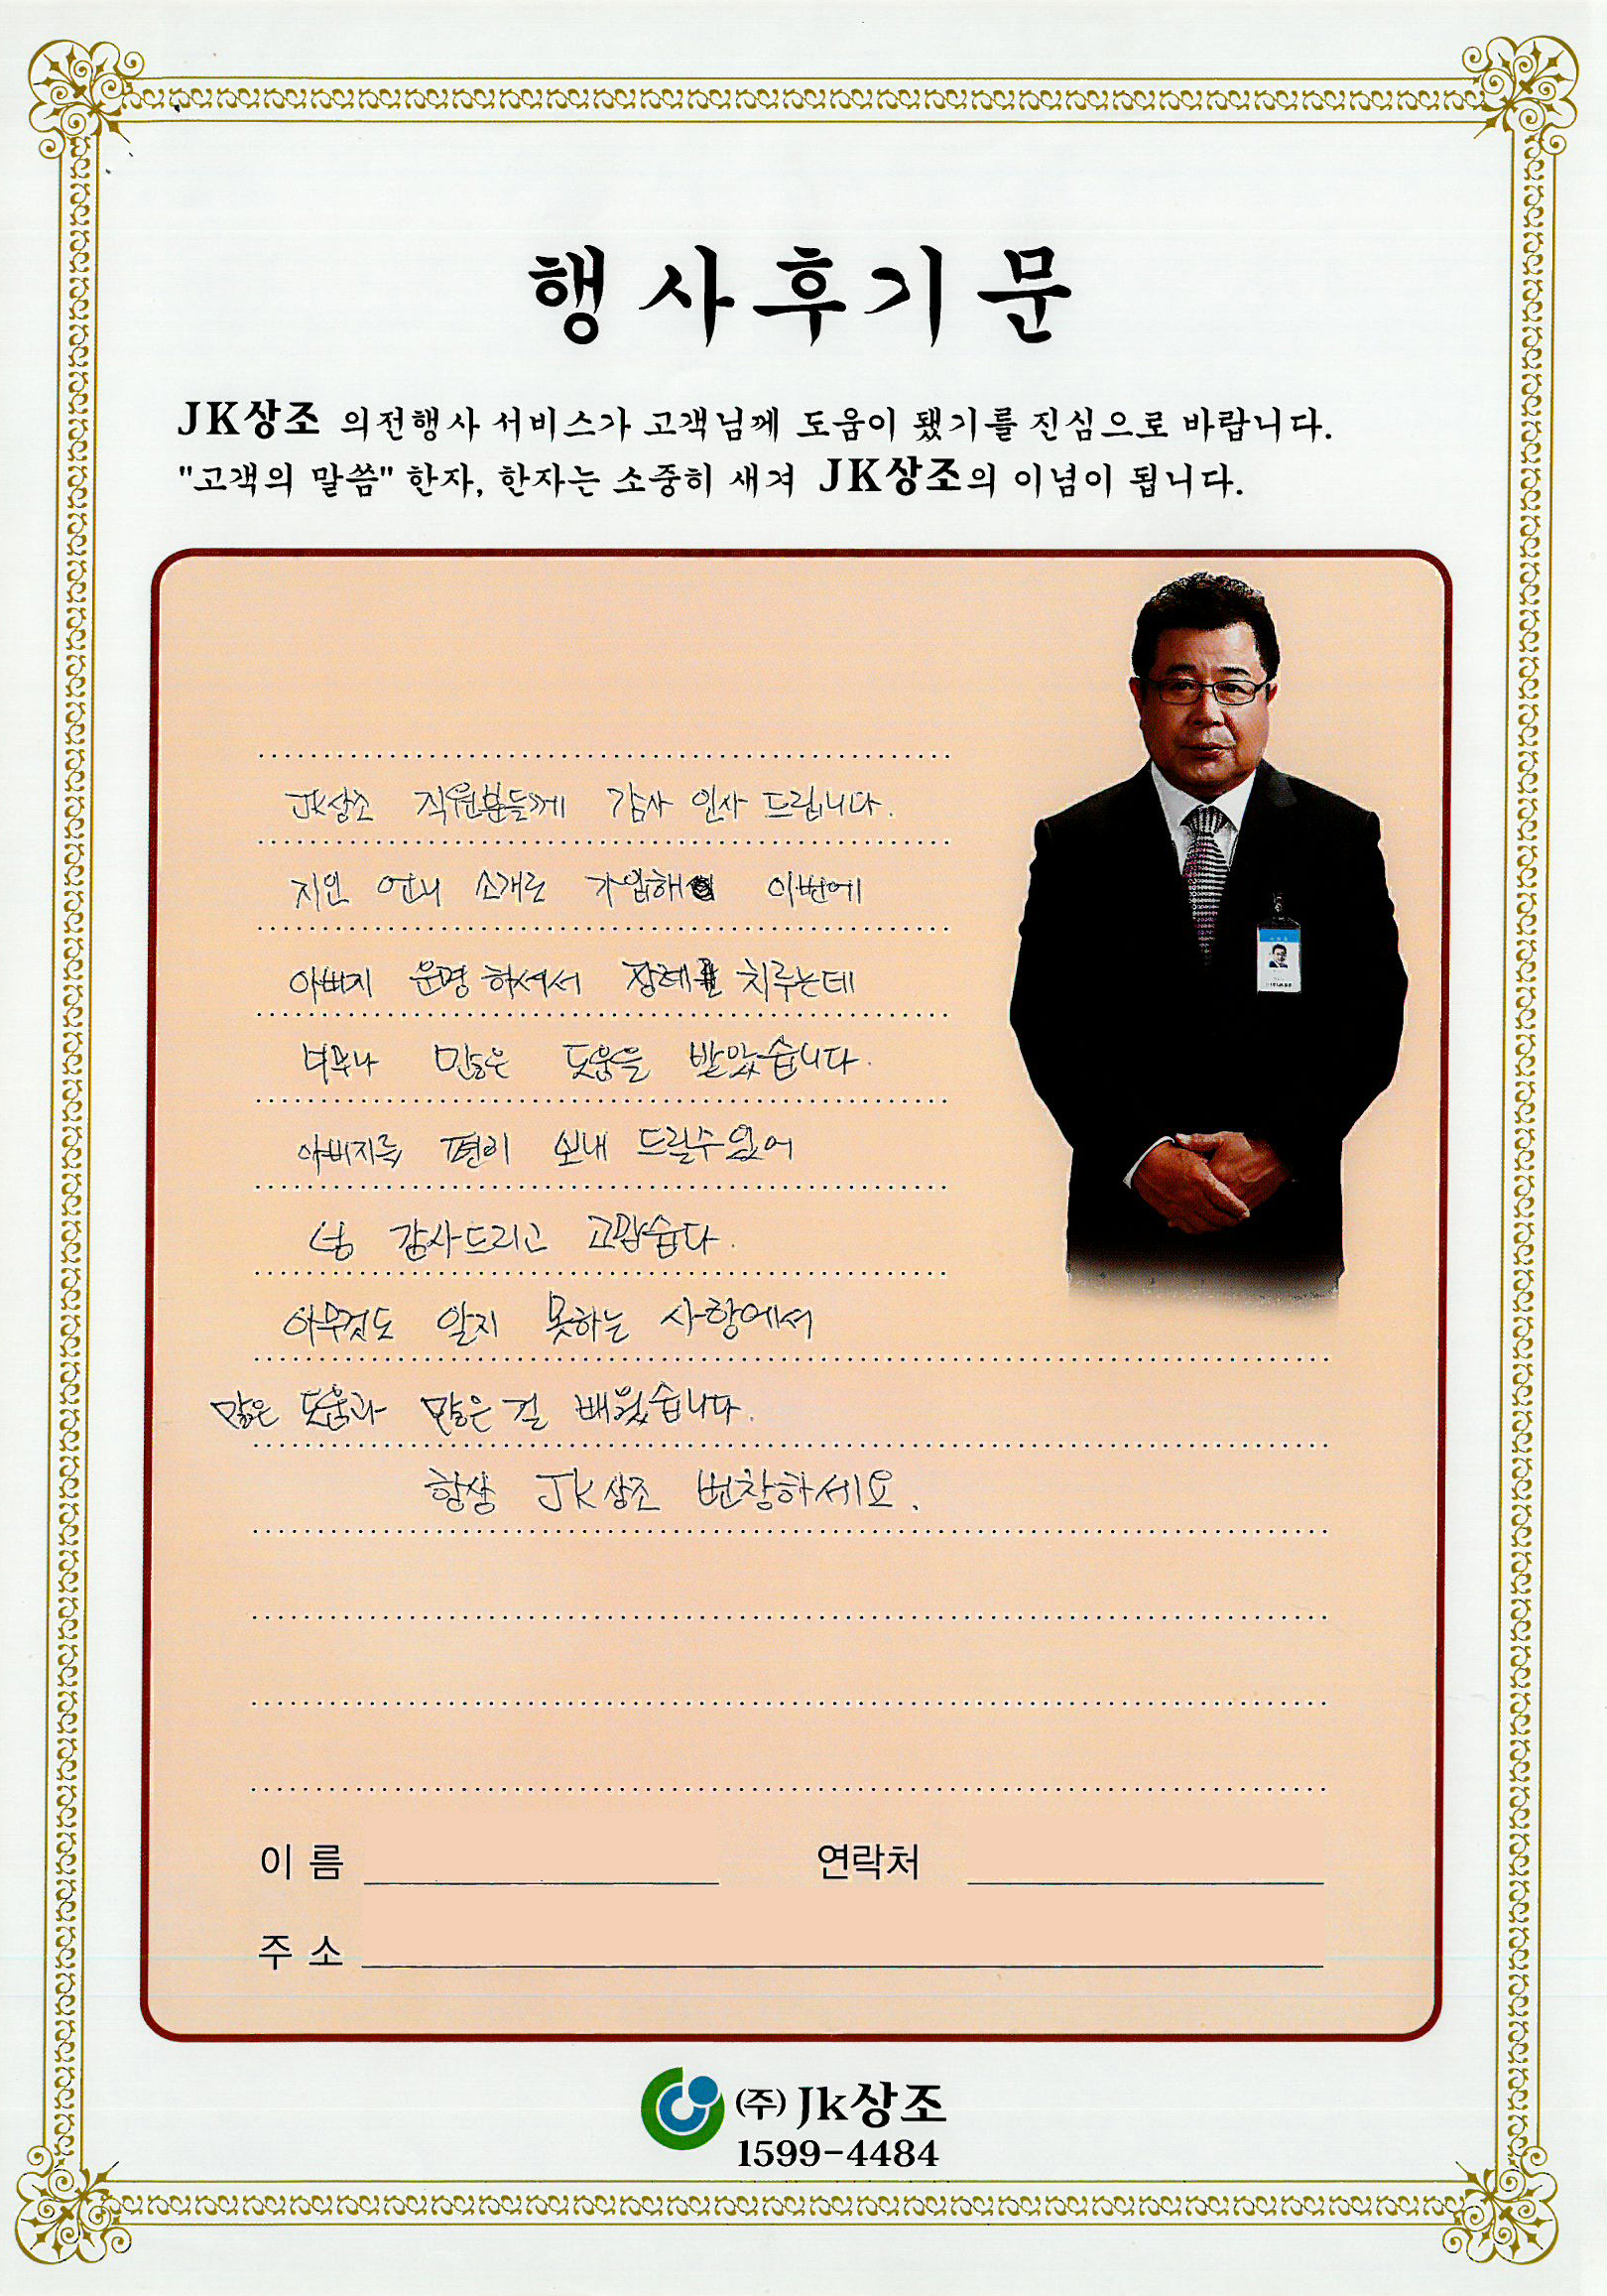 행사후기문
JK상조 의전행사 서비스가 고객님께 도움이 됐기를 진심으로 바랍니다.
"고객의 말씀" 한자, 한자는 소중히 새겨 JK상조의 이념이 됩니다.
JK상조 직원분들께 감사 인사 드립니다.
지인 언니 소개로 가입해 이번에
아버지 운명 하셔서 장례를 치루는데
너무나 많은 도움을 받았습니다.
아버지를 편히 보내 드릴수 있어
넘 감사드리고 고맙습다.
아무것도 알지 못하는 사항에서
많은 도움과 많은 걸 배웠습니다.
항상 Jk상조 번창하세요.
이 름 연락처
주 소
(주) Jk상조
1599-4484